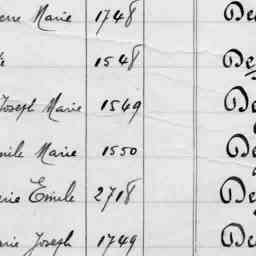 Marie 1748 De
1548 De
Joseph Marie 1549 De
Marie 1550 De
Emile 2718 De
Joseph 1749 De